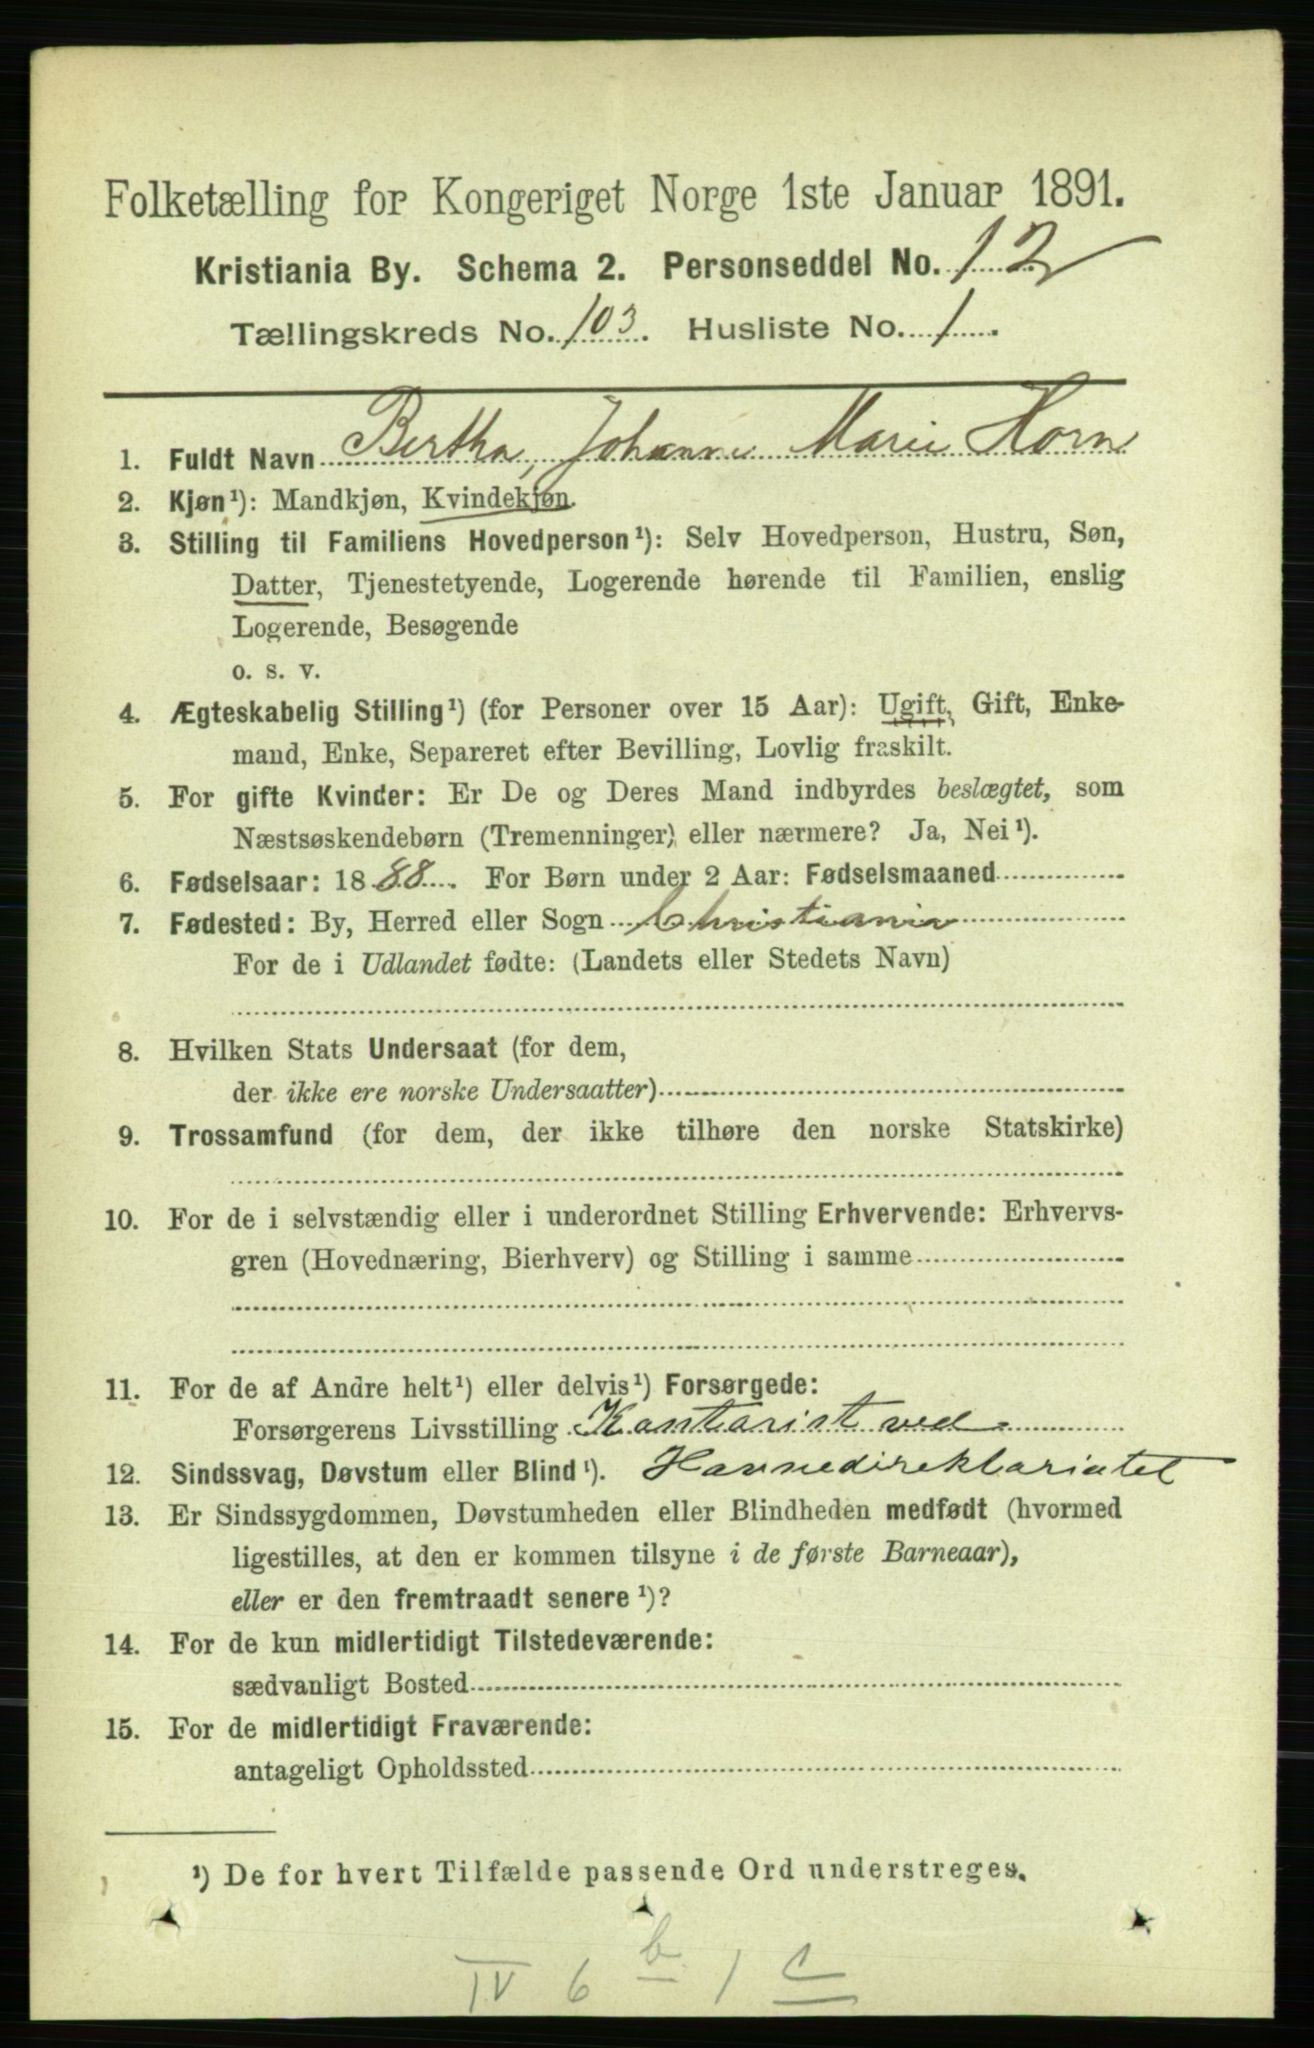 Folketælling for Kongeriget Norge 1ste Januar 1891.
Kristiania By. Schema 2. Personseddel No. 12
Tællingskreds No. 103. Husliste No. 1.
1. Fuldt Navn Bertha, Johanne Marie Horn
2. Kjøn¹): Mandkjøn, Kvindekjøn.
3. Stilling til Familiens Hovedperson¹): Selv Hovedperson, Hustru, Søn,
Datter, Tjenestetyende, Logerende hørende til Familien, enslig
Logerende, Besøgende
o. s. v.
4. Ægteskabelig Stilling¹) (for Personer over 15 Aar): Ugift, Gift, Enke-
mand, Enke, Separeret efter Bevilling, Lovlig fraskilt.
5. For gifte Kvinder: Er De og Deres Mand indbyrdes beslægtet, som
Næstsøskendebørn (Tremenninger) eller nærmere? Ja, Nei¹).
6. Fødselsaar: 1888. For Børn under 2 Aar: Fødselsmaaned
7. Fødested: By, Herred eller Sogn Christiania
For de i Udlandet fødte: (Landets eller Stedets Navn)
8. Hvilken Stats Undersaat (for dem,
der ikke ere norske Undersaatter)
9. Trossamfund (for dem, der ikke tilhøre den norske Statskirke)
10. For de i selvstændig eller i underordnet Stilling Erhvervende: Erhvervs-
gren (Hovednæring, Bierhverv) og Stilling i samme
11. For de af Andre helt¹) eller delvis¹) Forsørgede:
Forsørgerens Livsstilling Kontorist ved
12. Sindssvag, Døvstum eller Blind¹). Havnedirektoriatet
13. Er Sindssygdommen, Døvstumheden eller Blindheden medfødt (hvormed
ligestilles, at den er kommen tilsyne i de første Barneaar),
eller er den fremtraadt senere¹)?
14. For de kun midlertidigt Tilstedeværende:
sædvanligt Bosted
15. For de midlertidigt Fraværende:
antageligt Opholdssted
¹) De for hvert Tilfælde passende Ord understreges.
IV 6 b 1 c